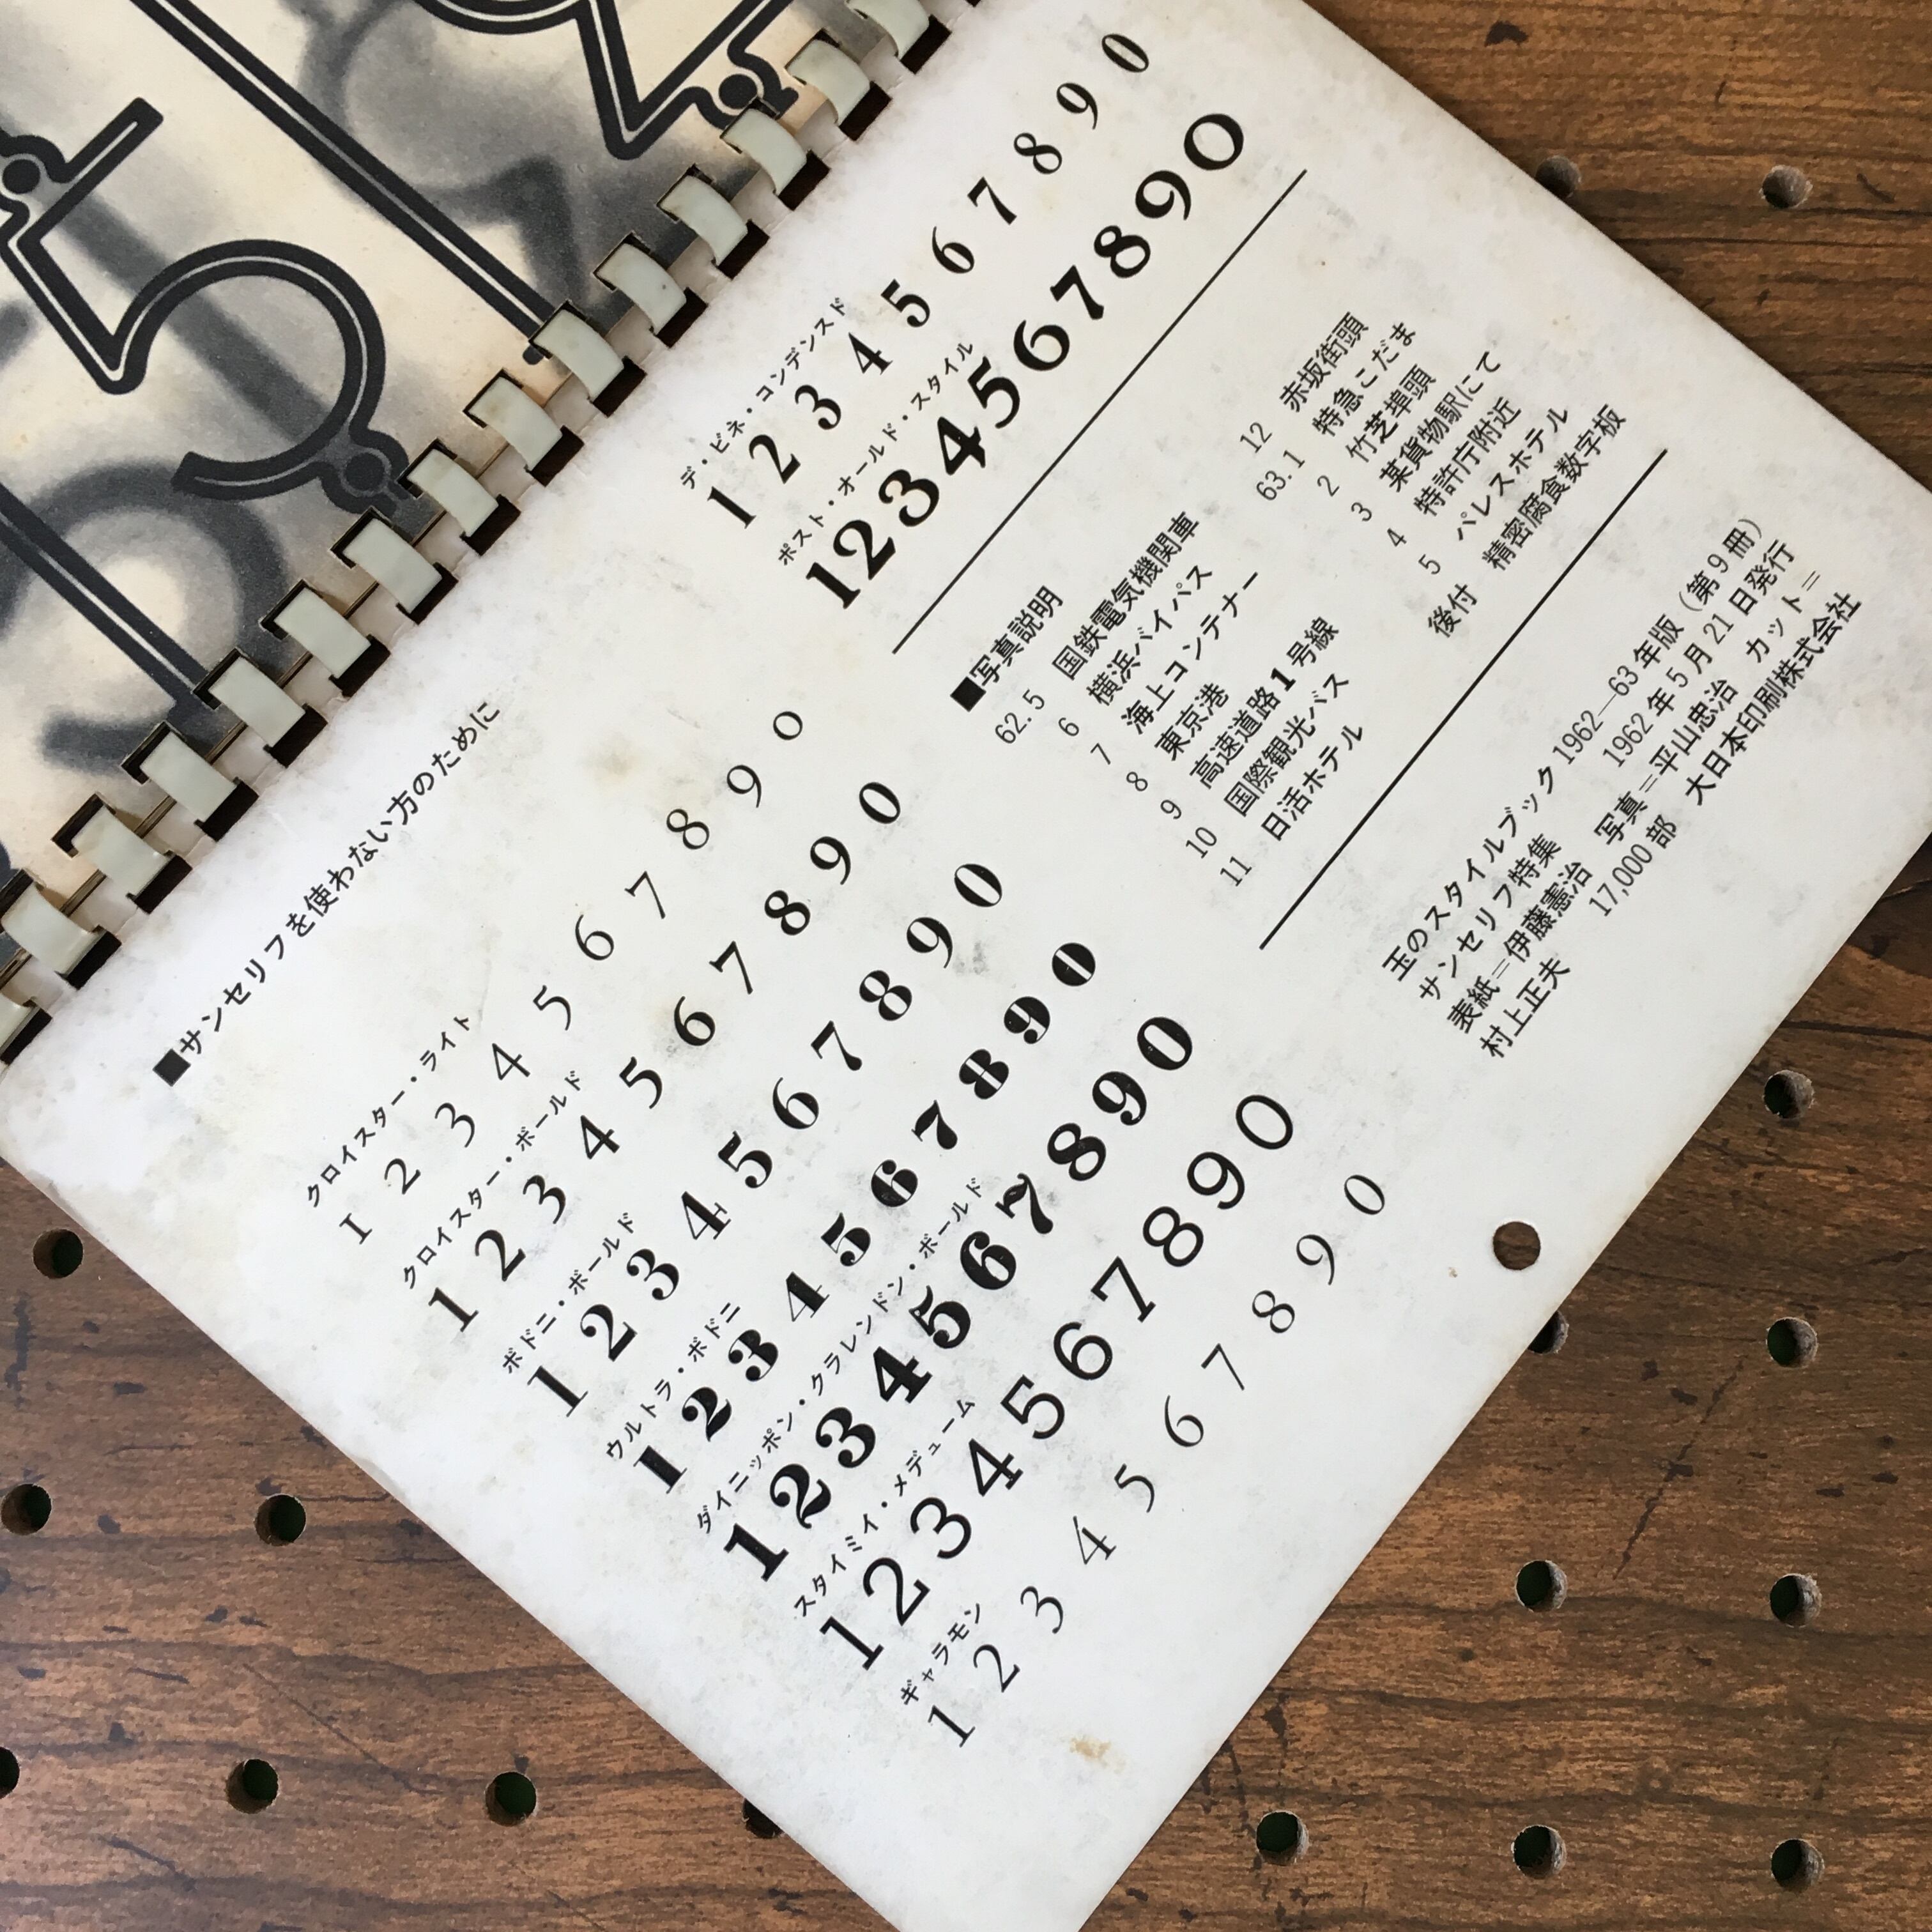 ■サンセリフを使わない方のために
クロイスター・ライト
1 2 3 4 5 6 7 8 9 0
クロイスター・ボールド
1 2 3 4 5 6 7 8 9 0
ボドニ・ボールド
1 2 3 4 5 6 7 8 9 0
ウルトラ・ボドニ
1 2 3 4 5 6 7 8 9 0
ダイニッポン・クラレンドン・ボールド
1 2 3 4 5 6 7 8 9 0
スタイミイ・メデューム
1 2 3 4 5 6 7 8 9 0
ギャラモン
1 2 3 4 5 6 7 8 9 0
デ・ビネ・コンデンスド
1 2 3 4 5 6 7 8 9 0
ポスト・オールド・スタイル
1234567890
■写真説明
62.5 国鉄電気機関車
6 横浜バイパス
7 海上コンテナー
8 東京港
9 高速道路1号線
10 国際観光バス
11 日活ホテル
12 赤坂街頭
63.1 特急こだま
2 竹芝埠頭
3 某貨物駅にて
4 特許庁附近
5 パレスホテル
後付 精密腐食数字板
玉のスタイルブック 1962—63年版(第9冊)
サンセリフ特集 1962年5月21日発行
表紙=伊藤憲治 写真=平山忠治 カット=
村上正夫 17,000部 大日本印刷株式会社
5